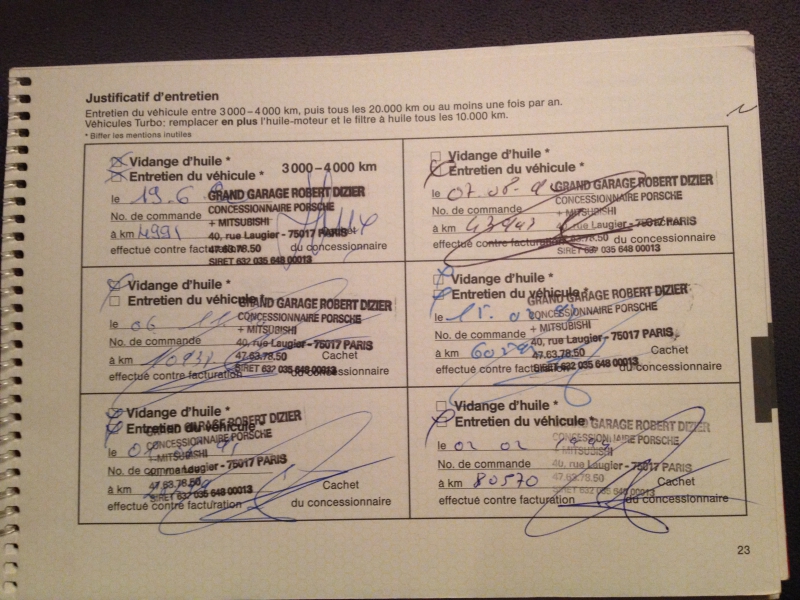 Justificatif d'entretien
Entretien du véhicule entre 3 000 – 4 000 km, puis tous les 20.000 km ou au moins une fois par an.
Véhicules Turbo: remplacer en plus l'huile-moteur et le filtre à huile tous les 10.000 km.
* Biffer les mentions inutiles
Vidange d'huile *
Entretien du véhicule *
3 000 – 4 000 km
le 19.6
GRAND GARAGE ROBERT DIZIER
CONCESSIONNAIRE PORSCHE
No. de commande
+ MITSUBISHI
à km 4991
40, rue Laugier - 75017 PARIS
effectué contre facturation
47.63.78.50
du concessionnaire
SIRET 632 035 648 00013
Vidange d'huile *
Entretien du véhicule *
le 07.08.
GRAND GARAGE ROBERT DIZIER
CONCESSIONNAIRE PORSCHE
No. de commande
+ MITSUBISHI
à km
40, rue Laugier - 75017 PARIS
effectué contre facturation
du concessionnaire
SIRET 632 035 648 00013
Vidange d'huile *
Entretien du véhicule *
GRAND GARAGE ROBERT DIZIER
le 06 11
CONCESSIONNAIRE PORSCHE
+ MITSUBISHI
No. de commande
40, rue Laugier - 75017 PARIS
à km
47.63.78.50
Cachet
effectué contre facturation
SIRET 632 035 648 00013
du concessionnaire
Vidange d'huile *
Entretien du véhicule *
GRAND GARAGE ROBERT DIZIER
le
CONCESSIONNAIRE PORSCHE
+ MITSUBISHI
No. de commande
40, rue Laugier - 75017 PARIS
à km
47.63.78.50
Cachet
effectué contre facturation
SIRET 632 035 648 00013
du concessionnaire
Vidange d'huile *
Entretien du véhicule *
GRAND GARAGE ROBERT DIZIER
le
CONCESSIONNAIRE PORSCHE
+ MITSUBISHI
No. de commande
Laugier - 75017 PARIS
à km
47.63.78.50
Cachet
SIRET 632 035 648 00013
effectué contre facturation
du concessionnaire
Vidange d'huile *
Entretien du véhicule *
GRAND GARAGE ROBERT DIZIER
le 02 02
CONCESSIONNAIRE PORSCHE
+ MITSUBISHI
No. de commande
40, rue Laugier - 75017 PARIS
à km 80570
47.63.78.50
Cachet
SIRET 632 035 648 00013
effectué contre facturation
du concessionnaire
23